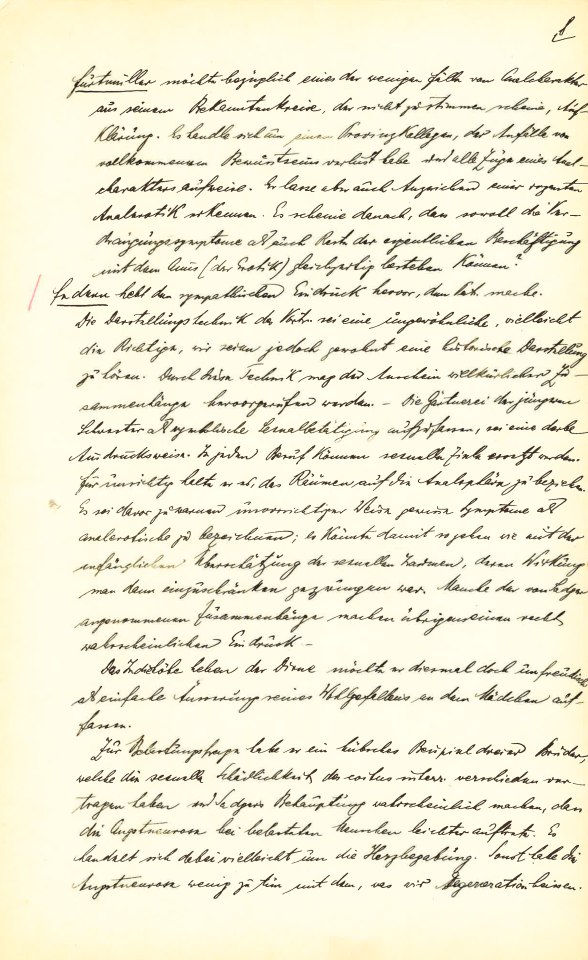 8
Furtmüller möchte bezüglich eines der wenigen Fälle von Analcharakter
aus seinem Bekanntenkreise, der nicht zu stimmen scheine, Auf-
klärung. Es handle sich um einen Provinzkollegen, der Anfälle von
vollkommenem Bewustseins verlust habe und alle Züge eines Anal-
charakters aufweise. Er lasse aber auch Anzeichen einer
Analerotik erkennen. Es scheine danach, dass sowol die Ver-
drängungssymptome als auch Reste der eigentlichen Beschäftigung
mit dem Anus (der Erotik) gleichzeitig bestehen können?
Federn hebt den sympathischen Eindruck hervor, den mache.
Die Darstellungstechnik des Vortr. sei eine ungewöhnliche, vielleicht
die Richtige, wir seien jedoch gewohnt eine historische Darstellung
zu hören. Durch diese Technik mag der Anschein willkürlicher Zu-
sammenhänge hervorgerufen werden. – Die Gärtnerei der jüngeren
Schwester als symbolische Sexualbetätigung aufzufassen, sei eine derbe
Ausdrucksweise. In jedem Beruf können sexuelle Ziele ersetzt werden.
Für unrichtig halte er es, das Räumen auf die Analsphäre zu beziehen.
Es sei davor zu warnen unvorsichtiger Weise gewisse Symptome als
analerotische zu bezeichnen; es könnte damit so gehen wie mit der
anfänglichen Überschätzung der sexuellen Traumen, deren Wirkung
man dann einzuschränken gezwungen war. Manche der von Sadger
angenommenen Zusammenhänge machen übrigens einen recht
wahrscheinlichen Eindruck –
Das In die Höhe heben der Dirne möchte er diesmal doch
als einfache Äusserung seines Wohlgefallens an dem Mädchen auf-
fassen.
Zur Belastungsfrage habe er ein hübsches Beispiel dreier Brüder,
welche die sexuelle Schädlichkeit des coitus interr. verschieden ver-
tragen haben und Sadgers Behauptung wahrscheinlich machen, dass
die Angstneurose bei belasteten Menschen leichter auftrete. Es
handelt sich dabei vielleicht um die Herzbegabung. Sonst habe die
Angstneurose wenig zu tun mit dem, was wir Degeneration heissen.